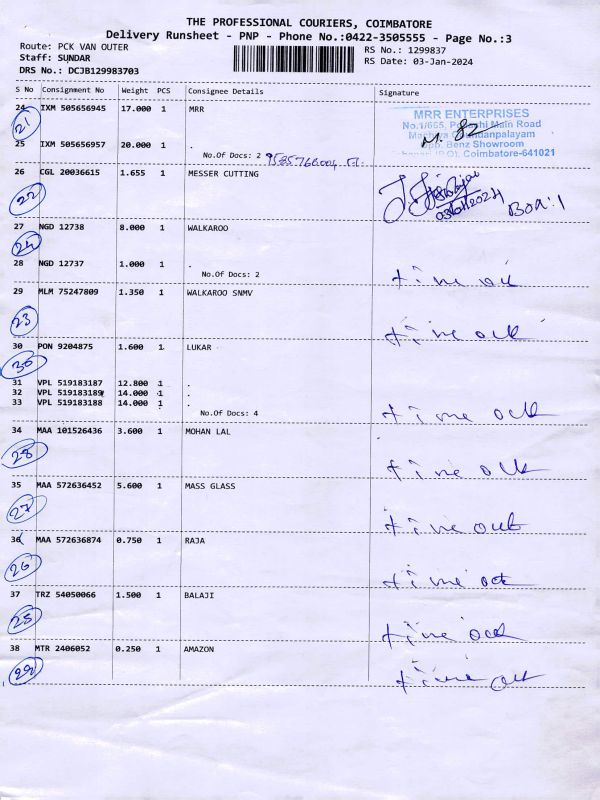 THE PROFESSIONAL COURIERS, COIMBATORE
Delivery Runsheet - PNP - Phone No.:0422-3505555 - Page No.:3
Route: PCK VAN OUTER
RS No.: 1299837
Staff: SUNDAR
RS Date: 03-Jan-2024
DRS No.: DCJB129983703
S No Consignment No Weight PCS Consignee Details Signature
24 IXM 505656945 17.000 1 MRR
MRR ENTERPRISES
21
Main Road
M. 82
25 IXM 505656957 20.000 1 .
Benz Showroom
No.Of Docs: 2
Coimbatore-641021
26 CGL 20036615 1.655 1 MESSER CUTTING
22
27 NGD 12738 8.000 1 WALKAROO
24
28 NGD 12737 1.000 1 .
No.Of Docs: 2
time out
29 MLM 75247809 1.350 1 WALKAROO SNMV
23
time out
30 PON 9204875 1.600 1 LUKAR
30
31 VPL 519183187 12.800 1 .
32 VPL 519183189 14.000 1 .
33 VPL 519183188 14.000 1 .
No.Of Docs: 4
time out
34 MAA 101526436 3.600 1 MOHAN LAL
28
time out
35 MAA 572636452 5.600 1 MASS GLASS
27
time out
36 MAA 572636874 0.750 1 RAJA
26
time out
37 TRZ 54050066 1.500 1 BALAJI
25
time out
38 MTR 2406052 0.250 1 AMAZON
29
time out